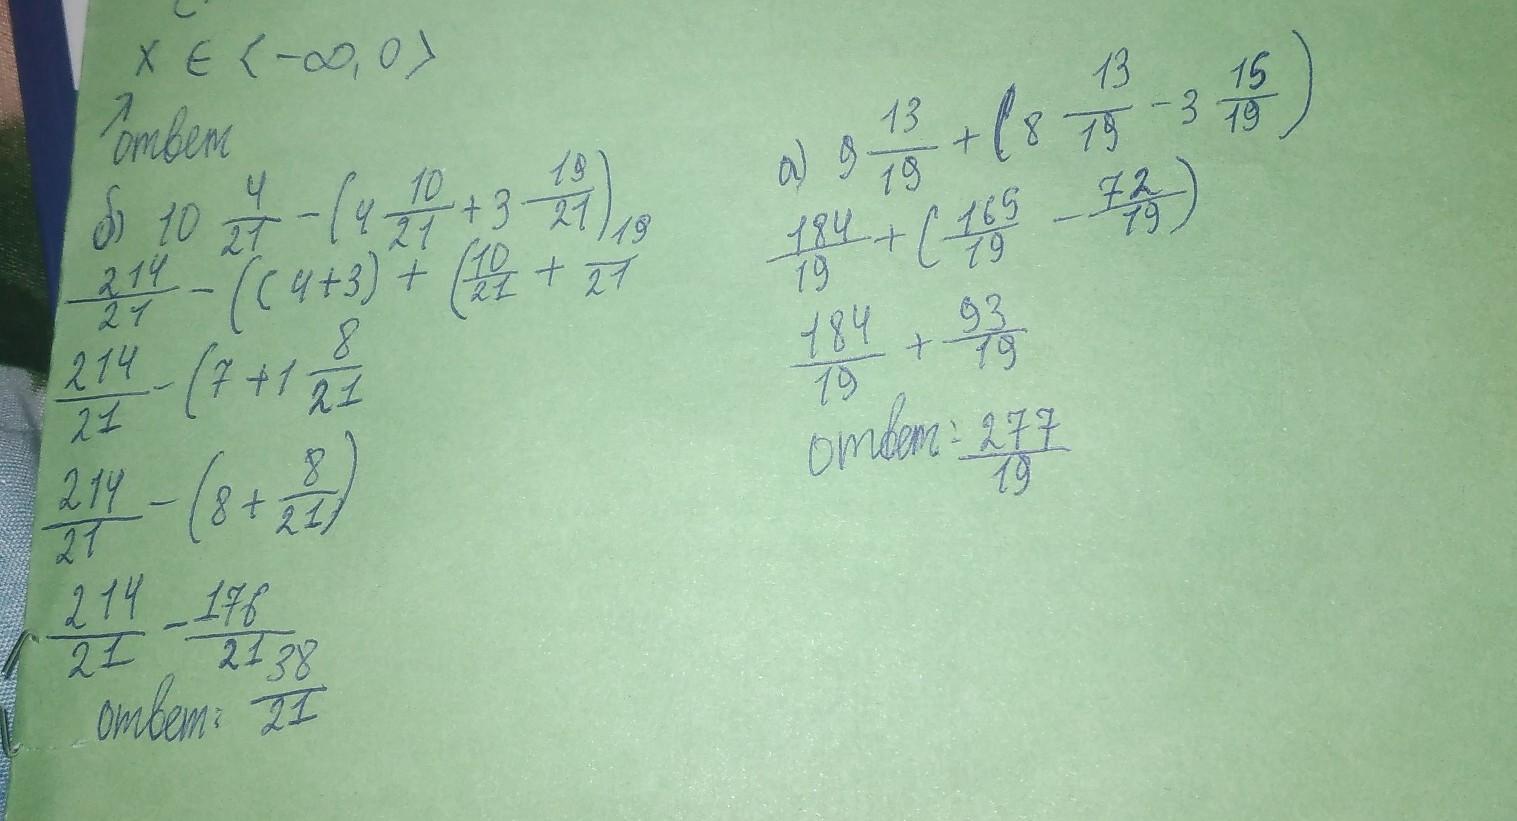 x ∈ (-∞, 0)
ответ
б) 10 4/21 - (4 10/21 + 3 19/21)
214/21 - ((4+3) + (10/21 + 19/21
214/21 - (7 + 1 8/21
214/21 - (8 + 8/21)
214/21 - 176/21
ответ: 38/21
а) 9 13/19 + (8 13/19 - 3 15/19)
184/19 + (165/19 - 72/19)
184/19 + 93/19
ответ: 277/19